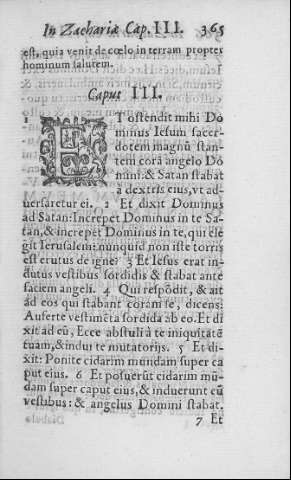 In Zachariæ Cap. III. 365
est, quia venit de cœlo in terram propter
hominum salutem.
Caput III.
ET ostendit mihi Do
minus Iesum sacer
dotem magnũ stan
tem corã angelo Do
mini: & Satan stabat
à dextris eius, vt ad-
uersaretur ei. 2 Et dixit Dominus
ad Satan: Increpet Dominus in te Sa-
tan, & increpet Dominus in te, qui ele
git Ierusalem: nunquid non iste torris
est erutus de igne? 3 Et Iesus erat in-
dutus vestibus sordidis & stabat ante
faciem angeli. 4 Qui respõdit, & ait
ad eos qui stabant coram se, dicens:
Auferte vestimẽta sordida ab eo. Et di
xit ad eũ, Ecce abstuli à te iniquitatẽ
tuam, & indui te mutatorijs. 5 Et di-
xit: Ponite cidarim mundam super ca
put eius. 6 Et posuerũt cidarim mũ-
dam super caput eius, & induerunt eũ
vestibus: & angelus Domini stabat.
7 Et